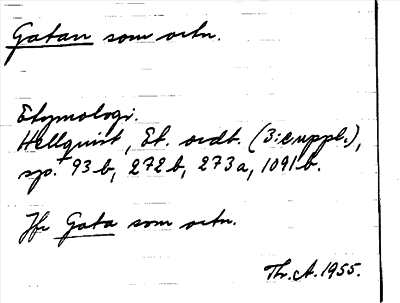 Gatan som ortn.
Etymologi.
Hellquist, Et. ordb. (3:e uppl.),
sp. 93 b, 272 b, 273 a, 1091 b.
Jfr Gata som ortn.
Th. A. 1955.